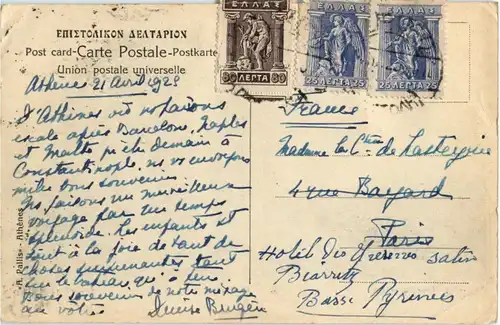 ΕΠΙΣΤΟΛΙΚΟΝ ΔΕΛΤΑΡΙΟΝ
Post card-Carte Postale-Postkarte
Union postale universelle
ΕΛΛΑΣ
30 ΛΕΠΤΑ 30
ΕΛΛΑΣ
25 ΛΕΠΤΑ 25
ΕΛΛΑΣ
25 ΛΕΠΤΑ 25
Athènes 21 Avril 1928
D'Athènes où ns faisons
escale après Barcelone, Naples
et Malte pour demain à
Constantinople, ns vs envoyons
mille bons souvenirs
Ns faisons un merveilleux
voyage par un temps
splendide. Les enfants st
tout à la joie de tant de
choses surprenantes tant
sur le bateau qu'à terre
Bons souvenirs de notre
au vôtre
Denise
France
Madame la Ctesse de Lasteyrie
4 rue Bayard
Paris
Hotel des
Biarritz
Basses Pyrénées
A. Pallis - Athènes